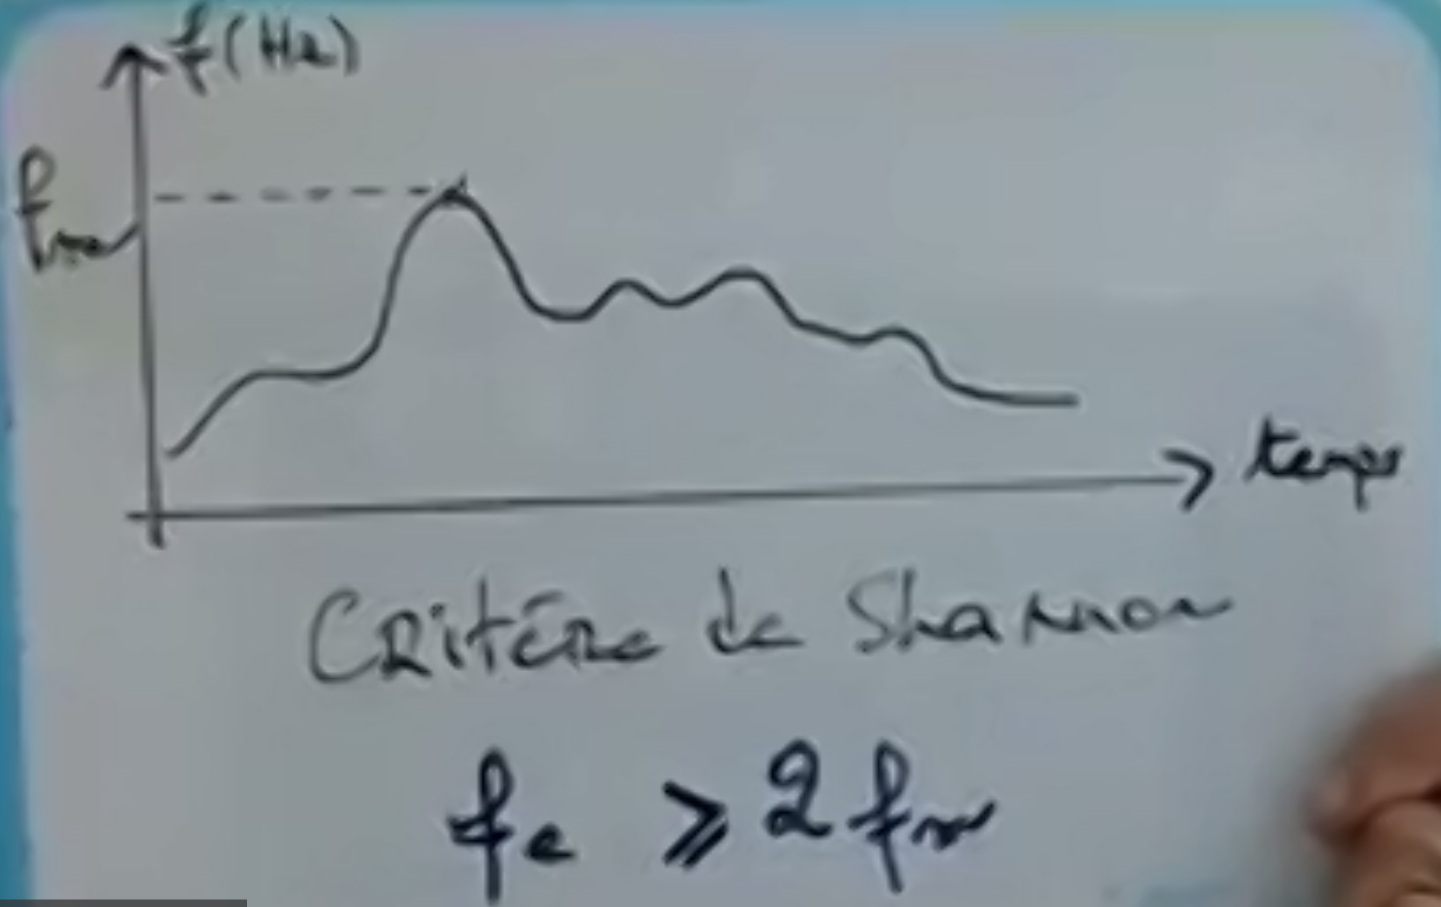 f(Hz)
fm
temps
Critère de Shannon
fe ≥ 2 fm